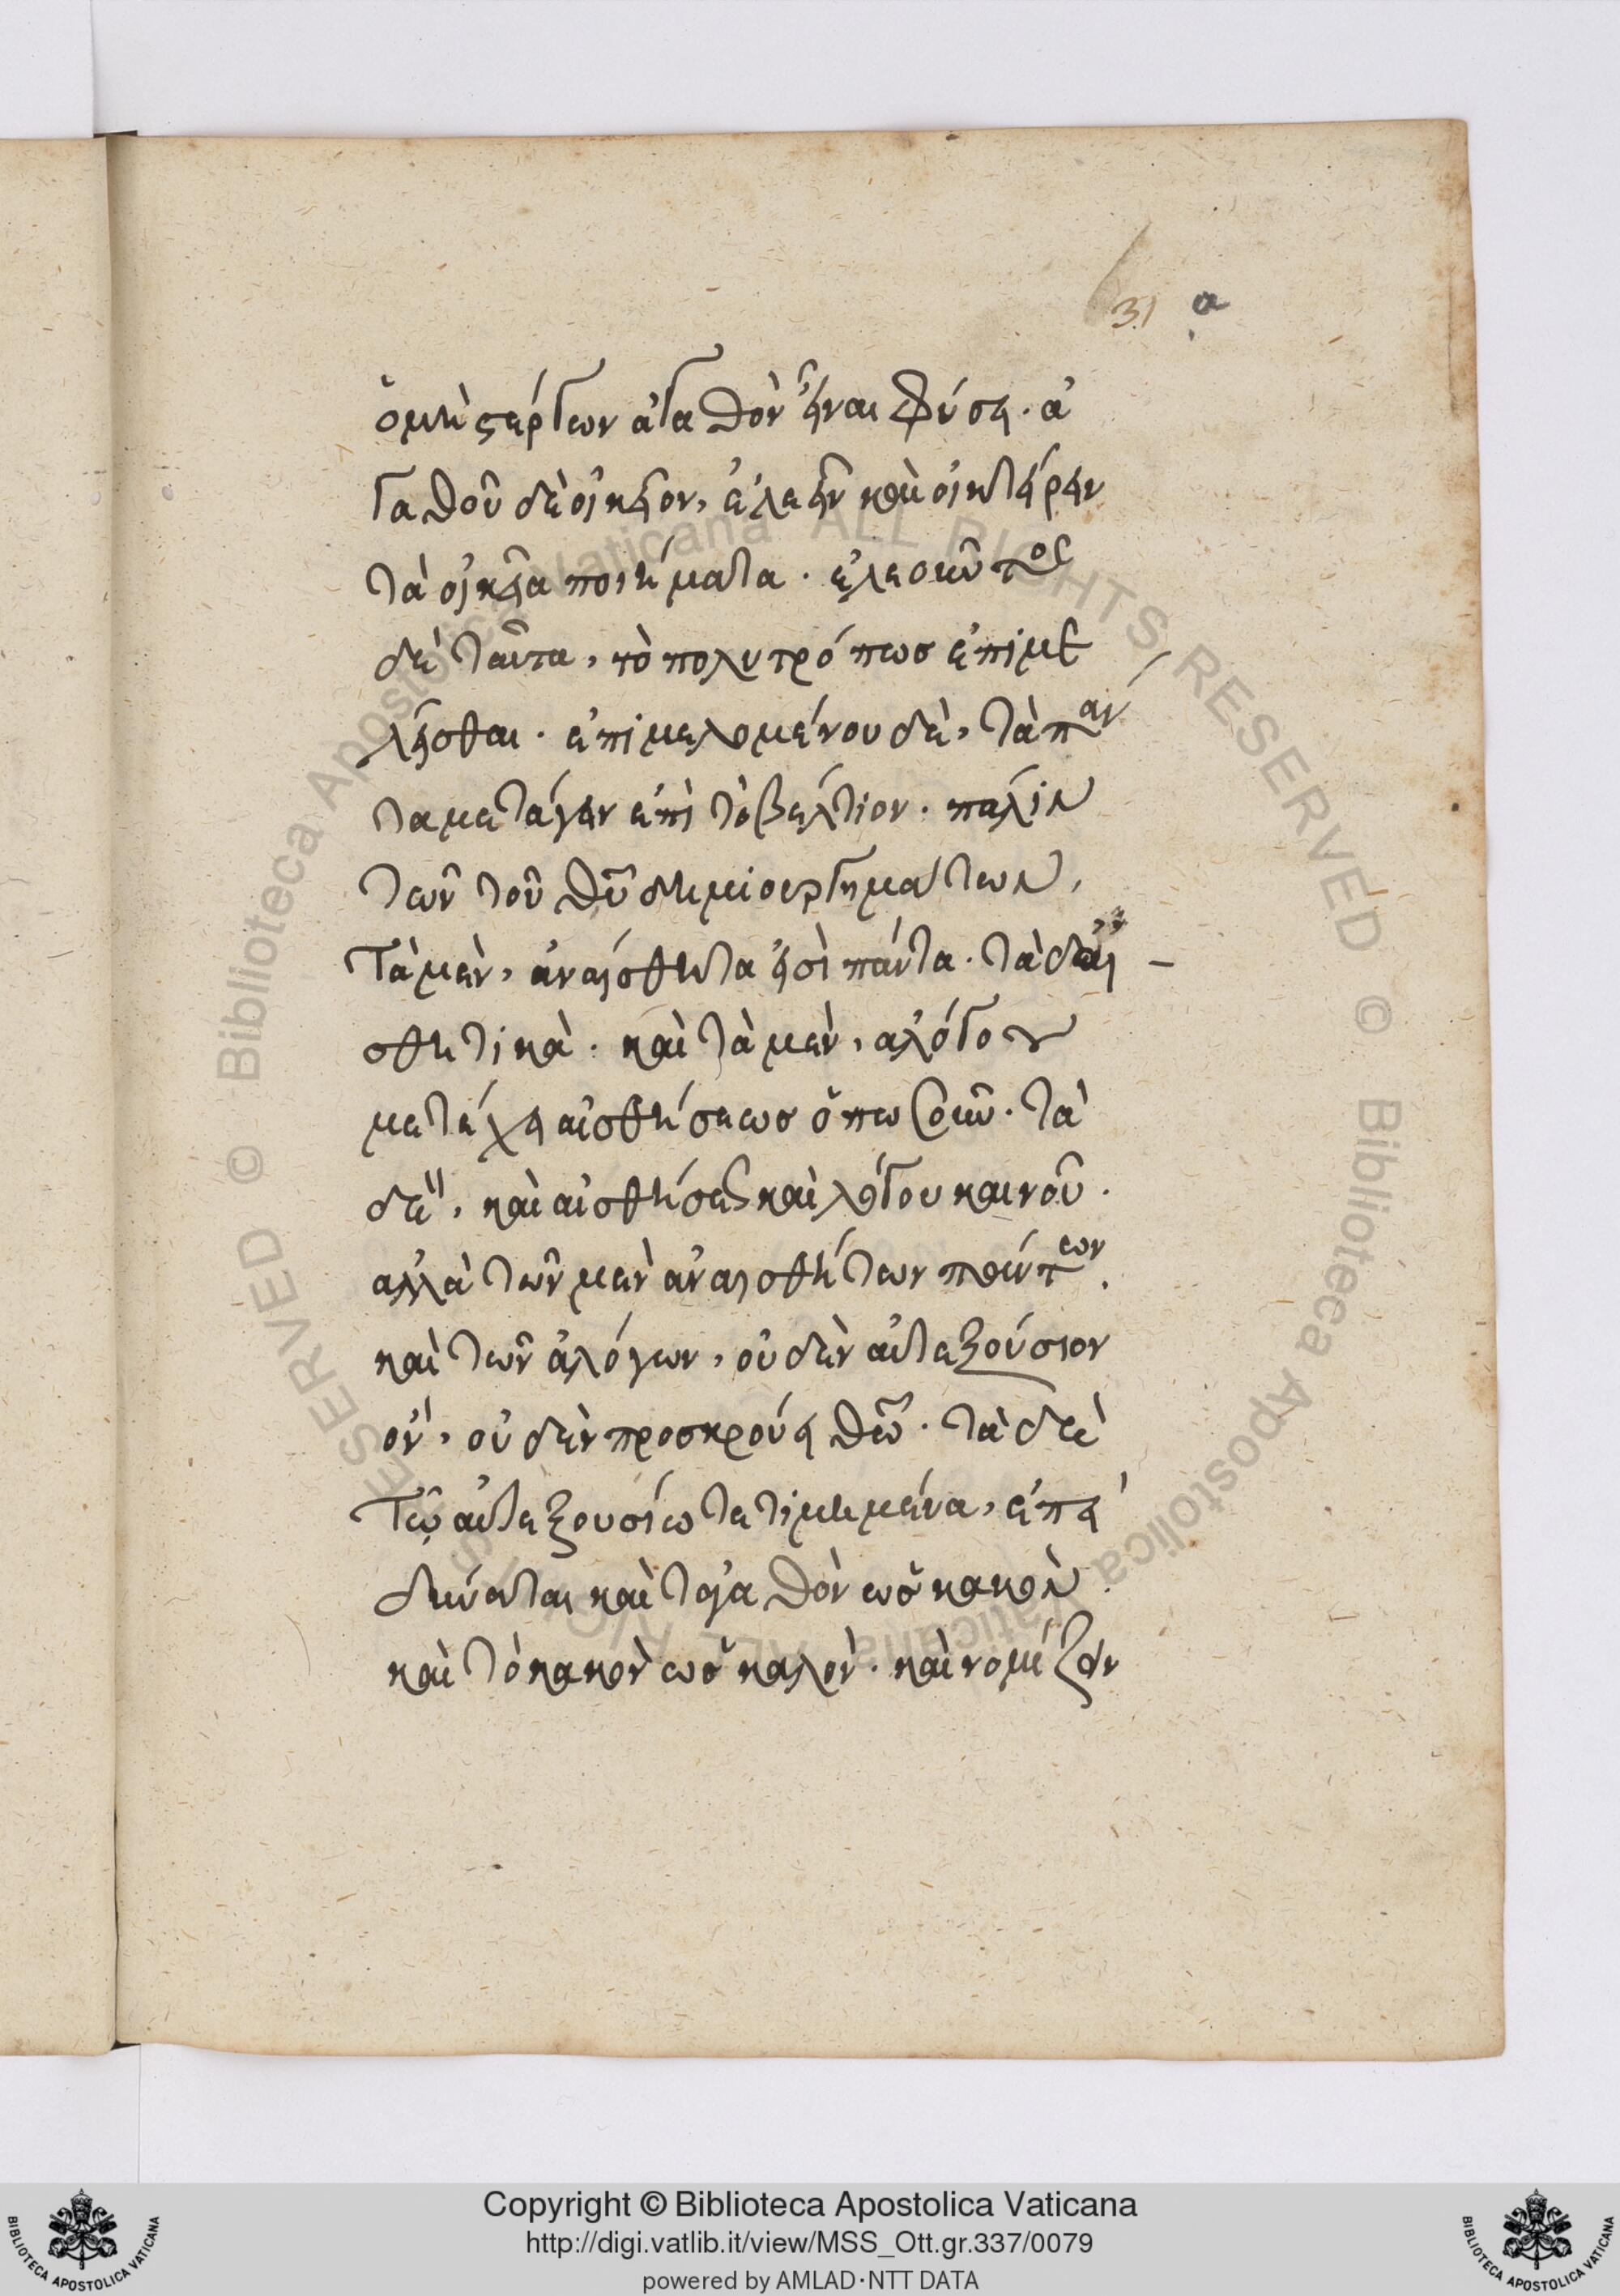 31 α
ὁ μὴ στέργων ἀγαθὸν εἶναι φύσει. ἀ
γαθοῦ δὲ οἰκεῖον, ἐλεεῖν καὶ οἰκτείρειν
τὰ οἰκεῖα ποιήματα. ἐλεοῦντος
δὲ ταῦτα, τὸ πολυτρόπως ἐπιμε
λεῖσθαι. ἐπιμελομένου δὲ, τὰ πάν
τα μετάγειν ἐπὶ τὸ βέλτιον. πάλιν
τῶν τοῦ θυ δημιουργημάτων,
τὰ μὲν, ἀναίσθητα εἰσὶ πάντα. τὰ δὲ αἰ
σθητικὰ. καὶ τὰ μὲν, ἀλόγου
μετέχει αἰσθήσεως
τὰ
δὲ, καὶ αἰσθήσεως καὶ λόγου καινοῦ.
ἀλλὰ τῶν μὲν ἀναισθήτων πάντων.
καὶ τῶν ἀλόγων, οὐδὲν αὐτεξούσιον
ὂν, οὐδὲν προσκρούει θῶ. τὰ δὲ
τῷ αὐτεξουσίω τετιμημένα, ἐπεὶ
δύναται καὶ τἀγαθὸν ὡς κακὸν.
καὶ τὸ κακὸν ὡς καλὸν. καὶ νομίζειν
Copyright © Biblioteca Apostolica Vaticana
http://digi.vatlib.it/view/MSS_Ott.gr.337/0079
powered by AMLAD·NTT DATA
BIBLIOTECA APOSTOLICA VATICANA
BIBLIOTECA APOSTOLICA VATICANA
© Biblioteca Apostolica Vaticana ALL RIGHTS RESERVED © Biblioteca Apostolica Vaticana ALL RIGHTS RESERVED